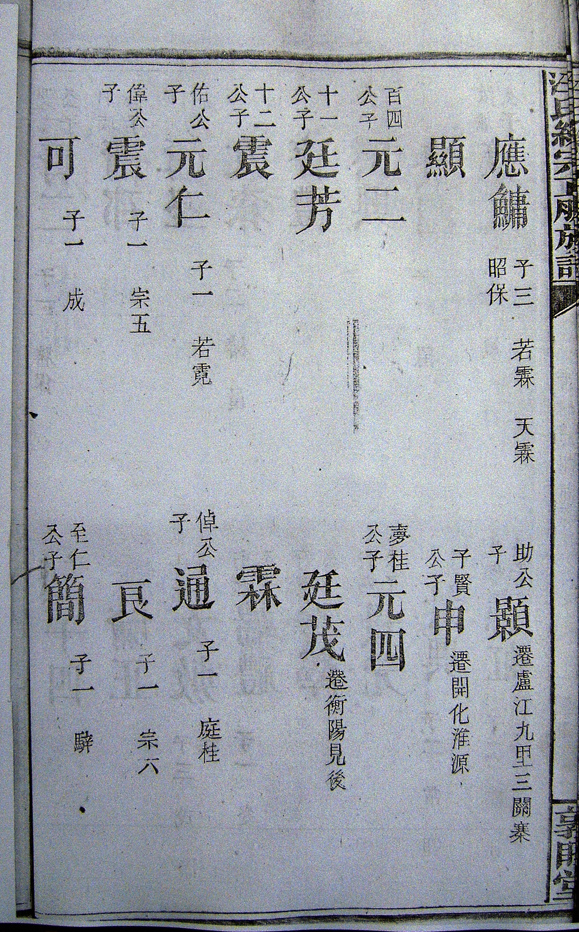 應鏞 子三 若霖 天霖 昭保
助公子 顥 遷廬江九甲三關寨
顯
子賢公子 申 遷開化淮源
百四公子 元二
夢桂公子 元四
十一公子 廷芳
廷茂 遷衡陽見後
十二公子 震
霖
佑公子 元仁 子一 若霓
倬公子 通 子一 庭桂
偉公子 震 子一 宗五
艮 子一 宗六
可 子一 成
至仁公子 簡 子一 騂